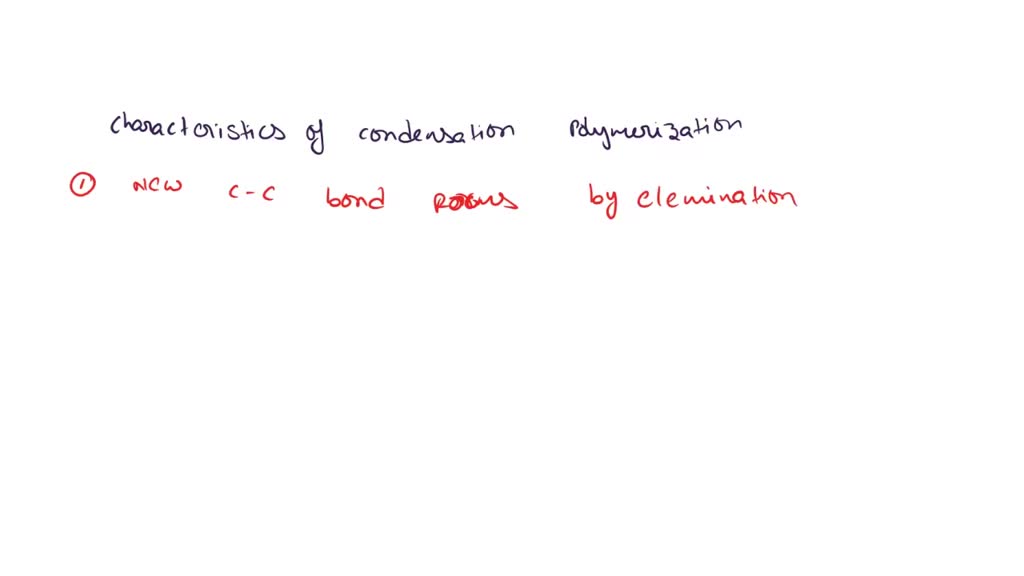 characteristics of condensation polymerization
① New C-C bond by elemination